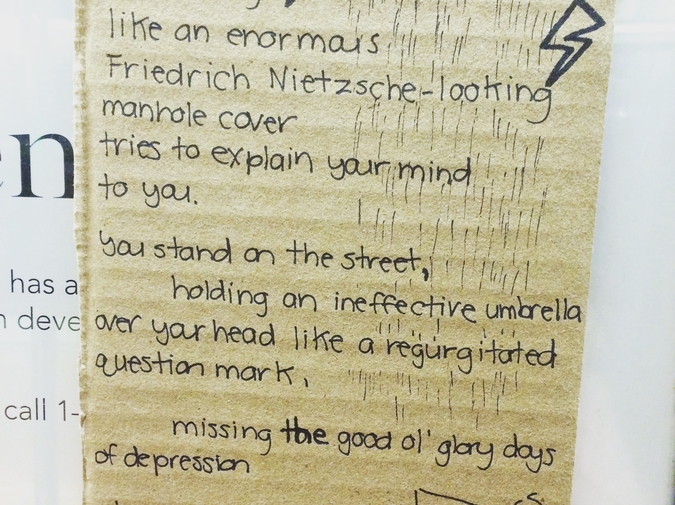 like an enormous
Friedrich Nietzsche-looking
manhole cover
tries to explain your mind
to you.
you stand on the street,
holding an ineffective umbrella
over your head like a regurgitated
question mark,
missing the good ol' glory days
of depression
en
has a
deve
call 1-